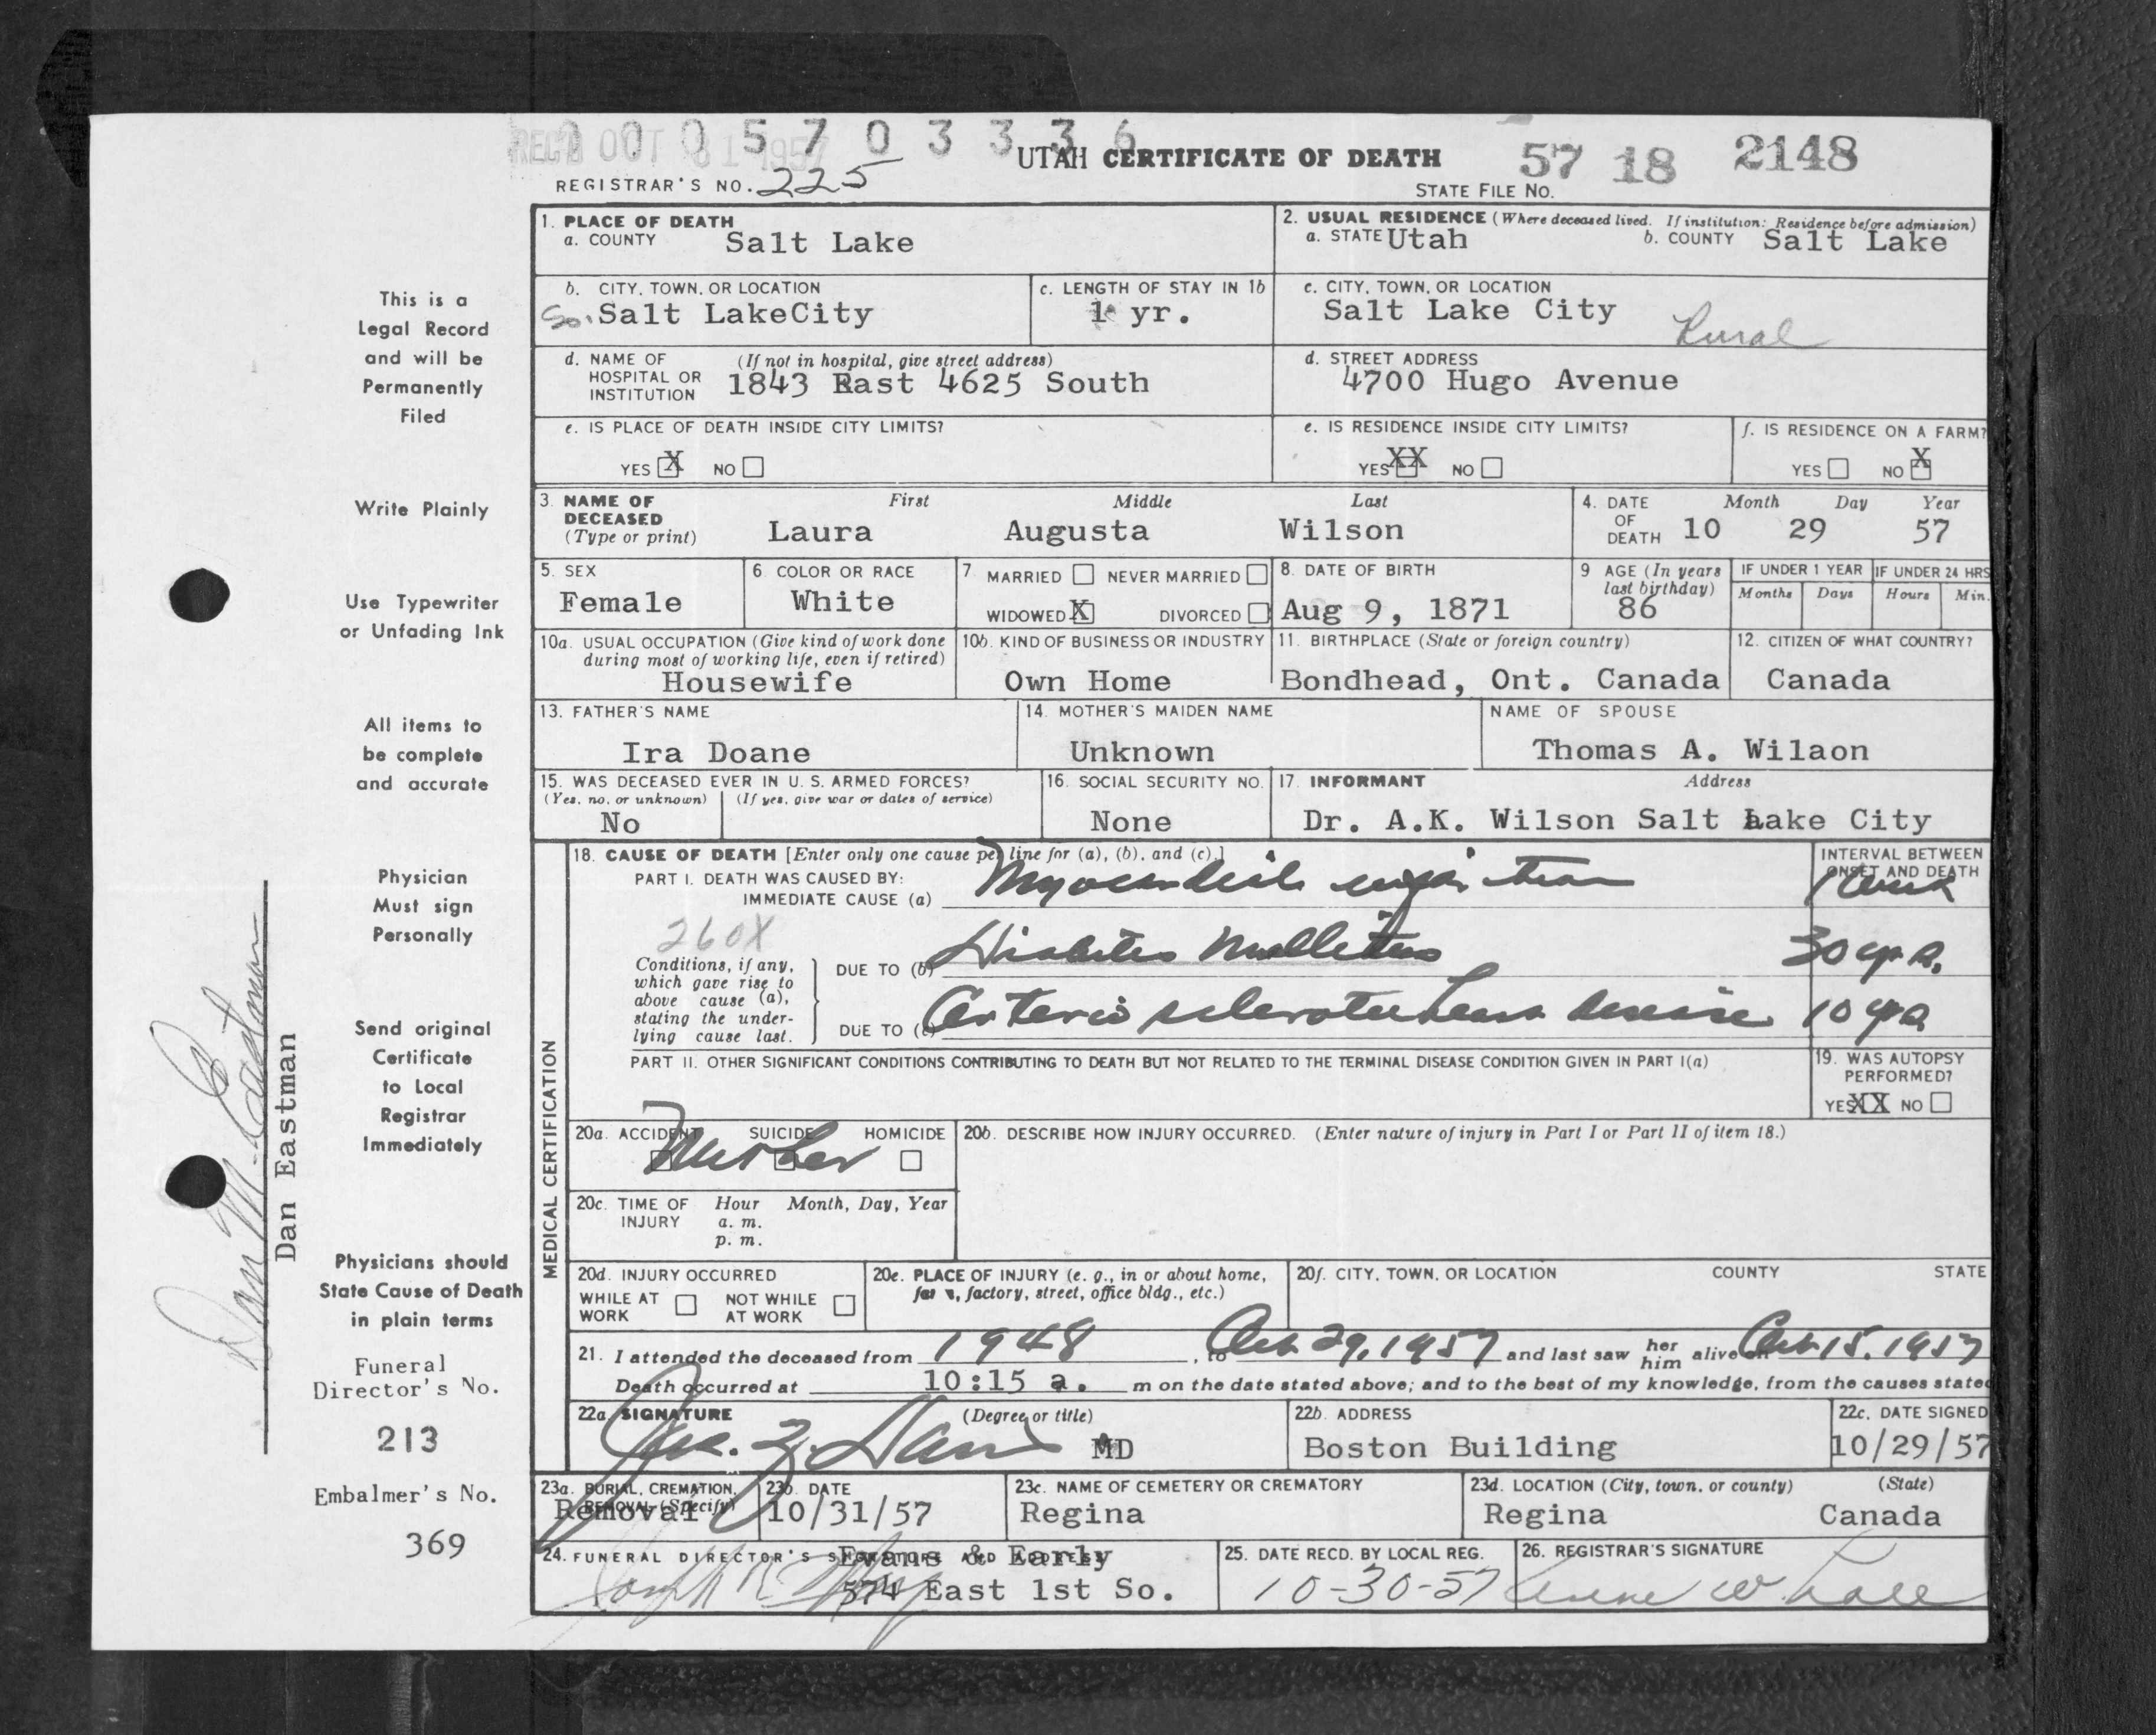 REC'D OCT 31 1957
0 0 0 5 7 0 3 3 3 6
UTAH CERTIFICATE OF DEATH
57 18 2148
REGISTRAR'S NO. 225
STATE FILE NO.
1. PLACE OF DEATH
a. COUNTY Salt Lake
2. USUAL RESIDENCE (Where deceased lived. If institution: Residence before admission)
a. STATE Utah b. COUNTY Salt Lake
b. CITY, TOWN, OR LOCATION
So. Salt LakeCity
c. LENGTH OF STAY IN 1b
1 yr.
c. CITY, TOWN, OR LOCATION
Salt Lake City Rural
d. NAME OF HOSPITAL OR INSTITUTION (If not in hospital, give street address)
1843 East 4625 South
d. STREET ADDRESS
4700 Hugo Avenue
e. IS PLACE OF DEATH INSIDE CITY LIMITS?
YES X NO
e. IS RESIDENCE INSIDE CITY LIMITS?
YES XX NO
f. IS RESIDENCE ON A FARM?
YES NO X
3. NAME OF DECEASED (Type or print) First Middle Last
Laura Augusta Wilson
4. DATE OF DEATH Month Day Year
10 29 57
5. SEX
Female
6. COLOR OR RACE
White
7. MARRIED NEVER MARRIED
WIDOWED X DIVORCED
8. DATE OF BIRTH
Aug 9, 1871
9 AGE (In years last birthday)
86
IF UNDER 1 YEAR IF UNDER 24 HRS
Months Days Hours Min.
10a. USUAL OCCUPATION (Give kind of work done during most of working life, even if retired)
Housewife
10b. KIND OF BUSINESS OR INDUSTRY
Own Home
11. BIRTHPLACE (State or foreign country)
Bondhead, Ont. Canada
12. CITIZEN OF WHAT COUNTRY?
Canada
13. FATHER'S NAME
Ira Doane
14. MOTHER'S MAIDEN NAME
Unknown
NAME OF SPOUSE
Thomas A. Wilaon
15. WAS DECEASED EVER IN U. S. ARMED FORCES?
(Yes, no, or unknown) (If yes, give war or dates of service)
No
16. SOCIAL SECURITY NO.
None
17. INFORMANT Address
Dr. A.K. Wilson Salt Lake City
MEDICAL CERTIFICATION
18. CAUSE OF DEATH [Enter only one cause per line for (a), (b), and (c).]
PART I. DEATH WAS CAUSED BY:
IMMEDIATE CAUSE (a) Myocardial infarction
INTERVAL BETWEEN ONSET AND DEATH
260X
Conditions, if any, which gave rise to above cause (a), stating the underlying cause last.
DUE TO (b) Diabetes Mellitus 30 yrs.
DUE TO (c) Arterio sclerotic heart disease 10 yrs
PART II. OTHER SIGNIFICANT CONDITIONS CONTRIBUTING TO DEATH BUT NOT RELATED TO THE TERMINAL DISEASE CONDITION GIVEN IN PART I(a)
19. WAS AUTOPSY PERFORMED?
YES XX NO
20a. ACCIDENT SUICIDE HOMICIDE
Neither
20b. DESCRIBE HOW INJURY OCCURRED. (Enter nature of injury in Part I or Part II of item 18.)
20c. TIME OF INJURY Hour Month, Day, Year
a. m.
p. m.
20d. INJURY OCCURRED
WHILE AT WORK NOT WHILE AT WORK
20e. PLACE OF INJURY (e. g., in or about home, farm, factory, street, office bldg., etc.)
20f. CITY, TOWN, OR LOCATION COUNTY STATE
21. I attended the deceased from 1948, to Oct 29, 1957 and last saw her him alive on Oct 15, 1957
Death occurred at 10:15 a. m on the date stated above; and to the best of my knowledge, from the causes stated
22a. SIGNATURE (Degree or title)
MD
22b. ADDRESS
Boston Building
22c. DATE SIGNED
10/29/57
23a. BURIAL, CREMATION, REMOVAL (Specify)
Removal
23b. DATE
10/31/57
23c. NAME OF CEMETERY OR CREMATORY
Regina
23d. LOCATION (City, town, or county) (State)
Regina Canada
24. FUNERAL DIRECTOR'S SIGNATURE AND ADDRESS
Evans & Early
574 East 1st So.
25. DATE RECD. BY LOCAL REG.
10-30-57
26. REGISTRAR'S SIGNATURE
This is a
Legal Record
and will be
Permanently
Filed
Write Plainly
Use Typewriter
or Unfading Ink
All items to
be complete
and accurate
Physician
Must sign
Personally
Send original
Certificate
to Local
Registrar
Immediately
Physicians should
State Cause of Death
in plain terms
Funeral
Director's No.
213
Embalmer's No.
369
Dan M. Eastman
Dan Eastman